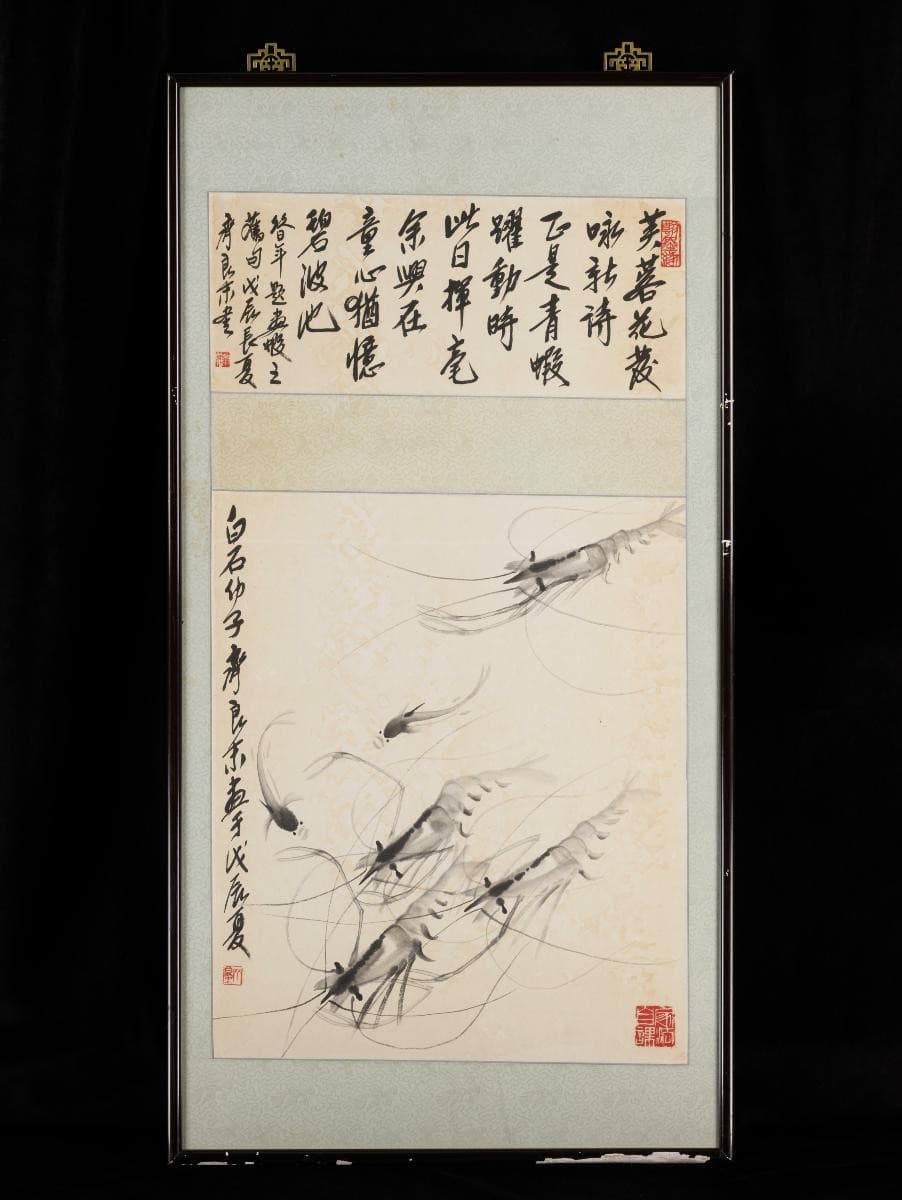 芙蓉花發
咏新詩
正是青蝦
躍動時
此日揮毫
余興在
童心猶憶
碧波池
昔年題畫蝦之
舊句戊辰長夏
齊良末書
白石幼子齊良末畫于戊辰夏